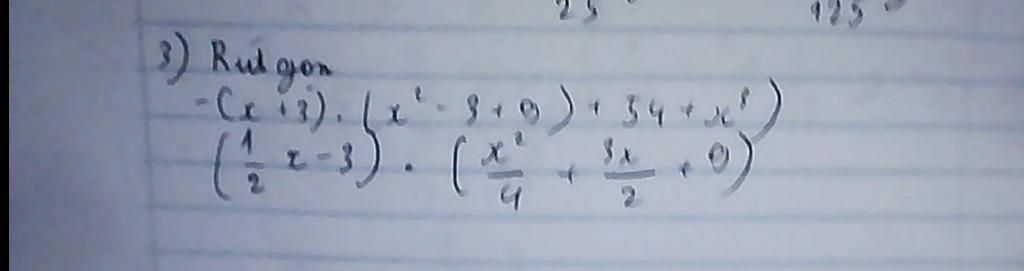 25 125
3) Rút gọn
-(x+3).(x² - 3 + 9) + 54 + x³)
(1/2 x - 3) . (x²/4 + 3x/2 + 9)